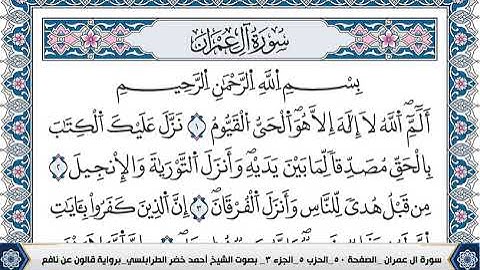 سُورَةُ آلِ عِمْرَانَ
بِسْمِ اللَّهِ الرَّحْمَٰنِ الرَّحِيمِ
أَلَٓمِّٓ اَ۬للَّهُ لَآ إِلَٰهَ إِلَّا هُوَ اَ۬لْحَيُّ اُ۬لْقَيُّومُ ١ نَزَّلَ عَلَيْكَ اَ۬لْكِتَٰبَ
بِالْحَقِّ مُصَدِّقاٗ لِّمَا بَيْنَ يَدَيْهِ وَأَنزَلَ اَ۬لتَّوْرَىٰةَ وَالْإِنجِيلَ ٢
مِن قَبْلُ هُدىٗ لِّلنَّاسِ وَأَنزَلَ اَ۬لْفُرْقَانَ ٣ إِنَّ اَ۬لذِينَ كَفَرُواْ بِـَٔايَٰتِ
سورة ال عمران _الصفحة ٥٠_الحزب ٥_الجزء ٣_ بصوت الشيخ أحمد خضر الطرابلسي_برواية قالون عن نافع